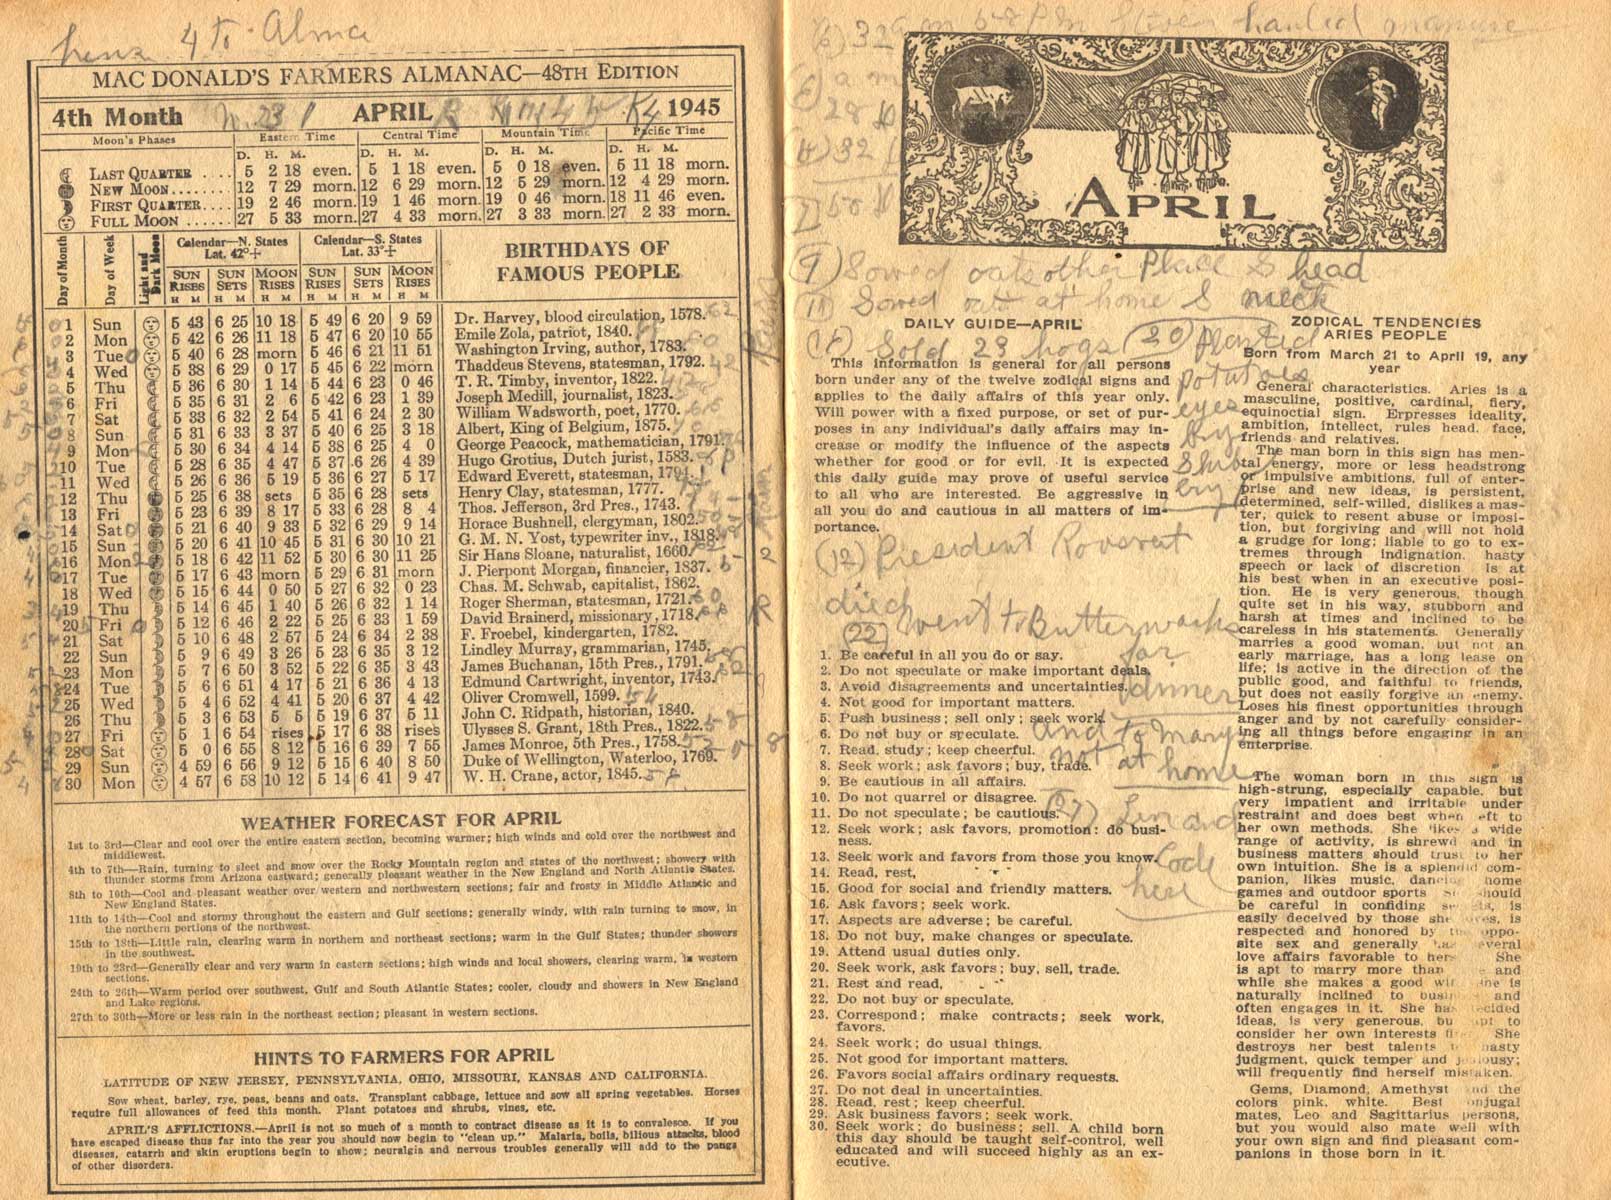 hens 4 to Alma
MAC DONALD'S FARMERS ALMANAC—48TH EDITION
4th Month APRIL 1945
Moon's Phases Eastern Time Central Time Mountain Time Pacific Time
D. H. M. D. H. M. D. H. M. D. H. M.
LAST QUARTER .... 5 2 18 even. 5 1 18 even. 5 0 18 even. 5 11 18 morn.
NEW MOON........ 12 7 29 morn. 12 6 29 morn. 12 5 29 morn. 12 4 29 morn.
FIRST QUARTER.... 19 2 46 morn. 19 1 46 morn. 19 0 46 morn. 18 11 46 even.
FULL MOON ...... 27 5 33 morn. 27 4 33 morn. 27 3 33 morn. 27 2 33 morn.
Day of Month Day of Week Light and Dark Moon Calendar—N. States Lat. 42°+ Calendar—S. States Lat. 33°+ BIRTHDAYS OF FAMOUS PEOPLE
SUN RISES SUN SETS MOON RISES SUN RISES SUN SETS MOON RISES
H M H M H M H M H M H M
1 Sun 5 43 6 25 10 18 5 49 6 20 9 59 Dr. Harvey, blood circulation, 1578.
2 Mon 5 42 6 26 11 18 5 47 6 20 10 55 Emile Zola, patriot, 1840.
3 Tue 5 40 6 28 morn 5 46 6 21 11 51 Washington Irving, author, 1783.
4 Wed 5 38 6 29 0 17 5 45 6 22 morn Thaddeus Stevens, statesman, 1792.
5 Thu 5 36 6 30 1 14 5 44 6 23 0 46 T. R. Timby, inventor, 1822.
6 Fri 5 35 6 31 2 6 5 42 6 23 1 39 Joseph Medill, journalist, 1823.
7 Sat 5 33 6 32 2 54 5 41 6 24 2 30 William Wadsworth, poet, 1770.
8 Sun 5 31 6 33 3 37 5 40 6 25 3 18 Albert, King of Belgium, 1875.
9 Mon 5 30 6 34 4 14 5 38 6 25 4 0 George Peacock, mathematician, 1791.
10 Tue 5 28 6 35 4 47 5 37 6 26 4 39 Hugo Grotius, Dutch jurist, 1583.
11 Wed 5 26 6 36 5 19 5 36 6 27 5 17 Edward Everett, statesman, 1794.
12 Thu 5 25 6 38 sets 5 35 6 28 sets Henry Clay, statesman, 1777.
13 Fri 5 23 6 39 8 17 5 33 6 28 8 4 Thos. Jefferson, 3rd Pres., 1743.
14 Sat 5 21 6 40 9 33 5 32 6 29 9 14 Horace Bushnell, clergyman, 1802.
15 Sun 5 20 6 41 10 45 5 31 6 30 10 21 G. M. N. Yost, typewriter inv., 1818.
16 Mon 5 18 6 42 11 52 5 30 6 30 11 25 Sir Hans Sloane, naturalist, 1660.
17 Tue 5 17 6 43 morn 5 29 6 31 morn J. Pierpont Morgan, financier, 1837.
18 Wed 5 15 6 44 0 50 5 27 6 32 0 23 Chas. M. Schwab, capitalist, 1862.
19 Thu 5 14 6 45 1 40 5 26 6 32 1 14 Roger Sherman, statesman, 1721.
20 Fri 5 12 6 46 2 22 5 25 6 33 1 59 David Brainerd, missionary, 1718.
21 Sat 5 10 6 48 2 57 5 24 6 34 2 38 F. Froebel, kindergarten, 1782.
22 Sun 5 9 6 49 3 26 5 23 6 35 3 12 Lindley Murray, grammarian, 1745.
23 Mon 5 7 6 50 3 52 5 22 6 35 3 43 James Buchanan, 15th Pres., 1791.
24 Tue 5 6 6 51 4 17 5 21 6 36 4 13 Edmund Cartwright, inventor, 1743.
25 Wed 5 4 6 52 4 41 5 20 6 37 4 42 Oliver Cromwell, 1599.
26 Thu 5 3 6 53 5 5 5 19 6 37 5 11 John C. Ridpath, historian, 1840.
27 Fri 5 1 6 54 rises 5 17 6 38 rises Ulysses S. Grant, 18th Pres., 1822.
28 Sat 5 0 6 55 8 12 5 16 6 39 7 55 James Monroe, 5th Pres., 1758.
29 Sun 4 59 6 56 9 12 5 15 6 40 8 50 Duke of Wellington, Waterloo, 1769.
30 Mon 4 57 6 58 10 12 5 14 6 41 9 47 W. H. Crane, actor, 1845.
WEATHER FORECAST FOR APRIL
1st to 3rd—Clear and cool over the entire eastern section, becoming warmer; high winds and cold over the northwest and
middlewest.
4th to 7th—Rain, turning to sleet and snow over the Rocky Mountain region and states of the northwest; showery with
thunder storms from Arizona eastward; generally pleasant weather in the New England and North Atlantic States.
8th to 10th—Cool and pleasant weather over western and northwestern sections; fair and frosty in Middle Atlantic and
New England States.
11th to 14th—Cool and stormy throughout the eastern and Gulf sections; generally windy, with rain turning to snow, in
the northern portions of the northwest.
15th to 18th—Little rain, clearing warm in northern and northeast sections; warm in the Gulf States; thunder showers
in the southwest.
19th to 23rd—Generally clear and very warm in eastern sections; high winds and local showers, clearing warm, in western
sections.
24th to 26th—Warm period over southwest, Gulf and South Atlantic States; cooler, cloudy and showers in New England
and Lake regions.
27th to 30th—More or less rain in the northeast section; pleasant in western sections.
HINTS TO FARMERS FOR APRIL
LATITUDE OF NEW JERSEY, PENNSYLVANIA, OHIO, MISSOURI, KANSAS AND CALIFORNIA.
Sow wheat, barley, rye, peas, beans and oats. Transplant cabbage, lettuce and sow all spring vegetables. Horses
require full allowances of feed this month. Plant potatoes and shrubs, vines, etc.
APRIL'S AFFLICTIONS.—April is not so much of a month to contract disease as it is to convalesce. If you
have escaped disease thus far into the year you should now begin to "clean up." Malaria, boils, bilious attacks, blood
diseases, catarrh and skin eruptions begin to show; neuralgia and nervous troubles generally will add to the pangs
of other disorders.
hauled manure
APRIL
(9) Sowed oats other Place S head
(11) Sowed oats at home S neck
Sold 23 hogs (20) Planted
potatoes
eyes
DAILY GUIDE—APRIL
This information is general for all persons
born under any of the twelve zodical signs and
applies to the daily affairs of this year only.
Will power with a fixed purpose, or set of pur-
poses in any individual's daily affairs may in-
crease or modify the influence of the aspects
whether for good or for evil. It is expected
this daily guide may prove of useful service
to all who are interested. Be aggressive in
all you do and cautious in all matters of im-
portance.
(12) President Roosvent
died
(22) Went to Butterwachs
for
dinner
and to Mary
not at home
(27) Lem and
Code
here
1. Be careful in all you do or say.
2. Do not speculate or make important deals.
3. Avoid disagreements and uncertainties.
4. Not good for important matters.
5. Push business; sell only; seek work.
6. Do not buy or speculate.
7. Read, study; keep cheerful.
8. Seek work; ask favors; buy, trade.
9. Be cautious in all affairs.
10. Do not quarrel or disagree.
11. Do not speculate; be cautious.
12. Seek work; ask favors, promotion: do busi-
ness.
13. Seek work and favors from those you know.
14. Read, rest,
15. Good for social and friendly matters.
16. Ask favors; seek work.
17. Aspects are adverse; be careful.
18. Do not buy, make changes or speculate.
19. Attend usual duties only.
20. Seek work, ask favors; buy, sell, trade.
21. Rest and read,
22. Do not buy or speculate.
23. Correspond; make contracts; seek work,
favors.
24. Seek work; do usual things.
25. Not good for important matters.
26. Favors social affairs ordinary requests.
27. Do not deal in uncertainties.
28. Read, rest; keep cheerful.
29. Ask business favors; seek work.
30. Seek work; do business; sell. A child born
this day should be taught self-control, well
educated and will succeed highly as an ex-
ecutive.
ZODICAL TENDENCIES
ARIES PEOPLE
Born from March 21 to April 19, any
year
General characteristics. Aries is a
masculine, positive, cardinal, fiery,
equinoctial sign. Erpresses ideality,
ambition, intellect, rules head, face,
friends and relatives.
The man born in this sign has men-
tal energy, more or less headstrong
or impulsive ambitions, full of enter-
prise and new ideas, is persistent,
determined, self-willed, dislikes a mas-
ter, quick to resent abuse or imposi-
tion, but forgiving and will not hold
a grudge for long; liable to go to ex-
tremes through indignation, hasty
speech or lack of discretion. Is at
his best when in an executive posi-
tion. He is very generous, though
quite set in his way, stubborn and
harsh at times and inclined to be
careless in his statements. Generally
marries a good woman, but not an
early marriage, has a long lease on
life; is active in the direction of the
public good, and faithful to friends,
but does not easily forgive an enemy.
Loses his finest opportunities through
anger and by not carefully consider-
ing all things before engaging in an
enterprise.
The woman born in this sign is
high-strung, especially capable, but
very impatient and irritable under
restraint and does best when left to
her own methods. She likes a wide
range of activity, is shrewd and in
business matters should trust to her
own intuition. She is a splendid com-
panion, likes music, dancing home
games and outdoor sports should
be careful in confiding is
easily deceived by those she is
respected and honored by oppo-
site sex and generally several
love affairs favorable to her. She
is apt to marry more than and
while she makes a good is
naturally inclined to and
often engages in it. She has decided
ideas, is very generous, apt to
consider her own interests She
destroys her best talents hasty
judgment, quick temper and jealousy;
will frequently find herself mistaken.
Gems, Diamond, Amethyst and the
colors pink, white. Best conjugal
mates, Leo and Sagittarius persons,
but you would also mate well with
your own sign and find pleasant com-
panions in those born in it.